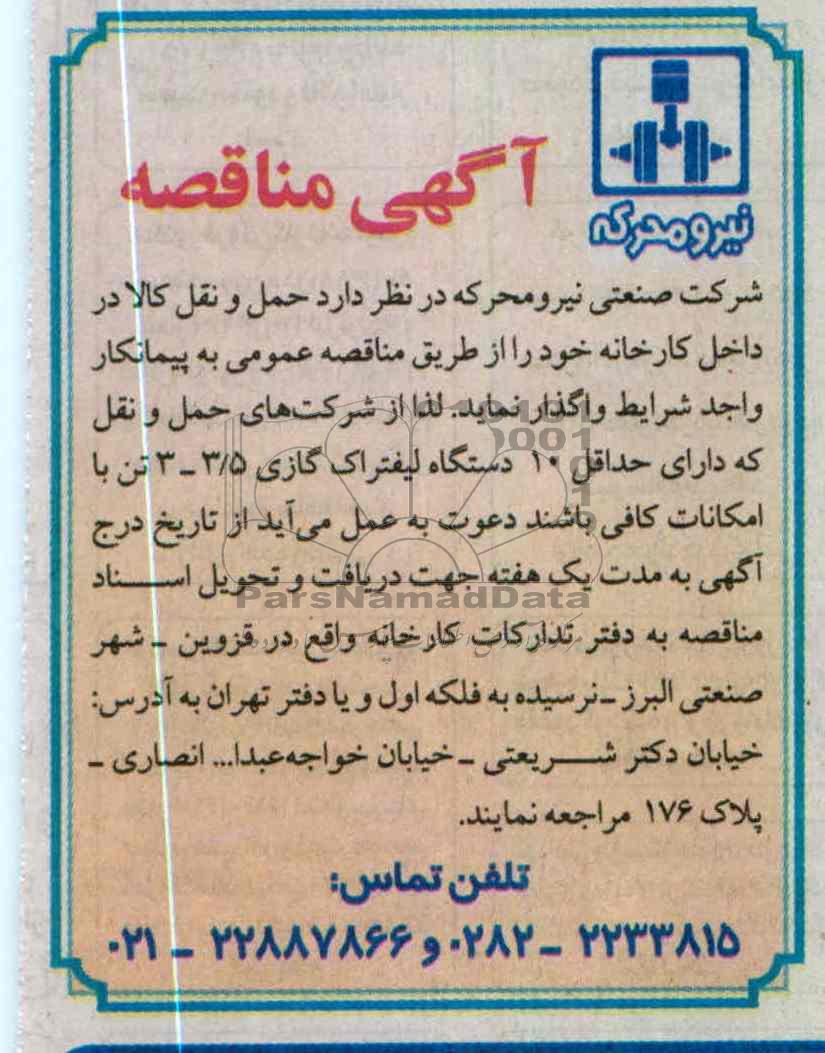 نیرومحرکه
آگهی مناقصه
شرکت صنعتی نیرومحرکه در نظر دارد حمل و نقل کالا در
داخل کارخانه خود را از طریق مناقصه عمومی به پیمانکار
واجد شرایط واگذار نماید. لذا از شرکت‌های حمل و نقل
که دارای حداقل ۱۰ دستگاه لیفتراک گازی ۳/۵ ـ ۳ تن با
امکانات کافی باشند دعوت به عمل می‌آید از تاریخ درج
آگهی به مدت یک هفته جهت دریافت و تحویل اسـناد
ParsNamadData
مناقصه به دفتر تدارکات کارخانه واقع در قزوین ـ شهر
صنعتی البرز ـ نرسیده به فلکه اول و یا دفتر تهران به آدرس:
خیابان دکتر شـریعتی ـ خیابان خواجه‌عبدا... انصاری ـ
پلاک ۱۷۶ مراجعه نمایند.
تلفن تماس:
۲۲۳۳۸۱۵ ـ ۰۲۸۲ و ۲۲۸۸۷۸۶۶ ـ ۰۲۱